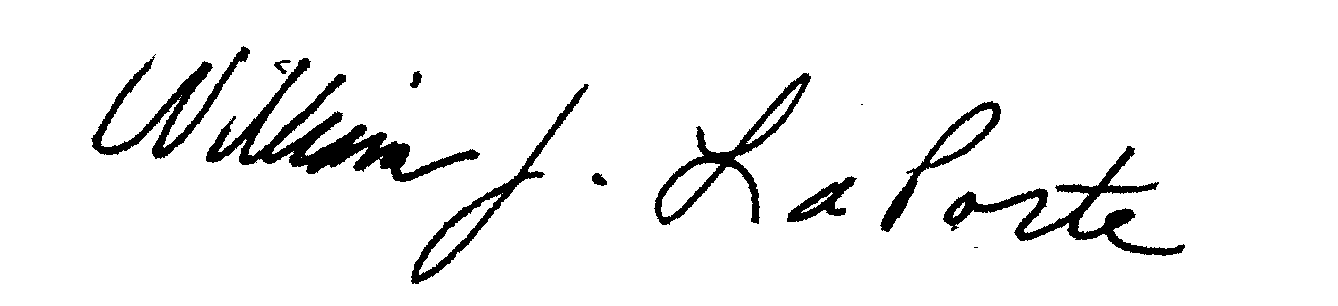 William J. LaPorte